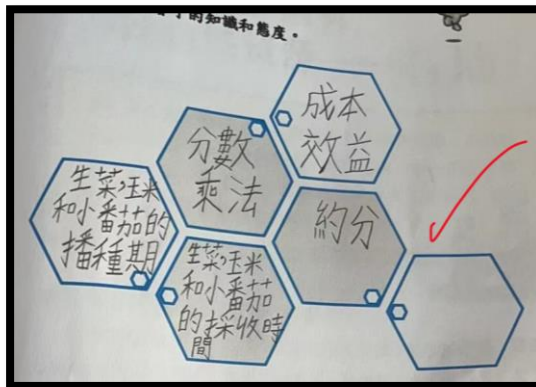 的知識和態度。
成本
效益
分數
乘法
約分
生菜,玉米
和小番茄的
播種期
生菜,玉米
和小番茄
的採收時
間